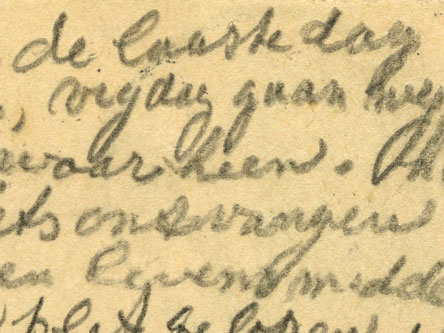 de laaste dag
, vrydag gaan weg
waar heen.
iets ontvangen
en levensmiddel